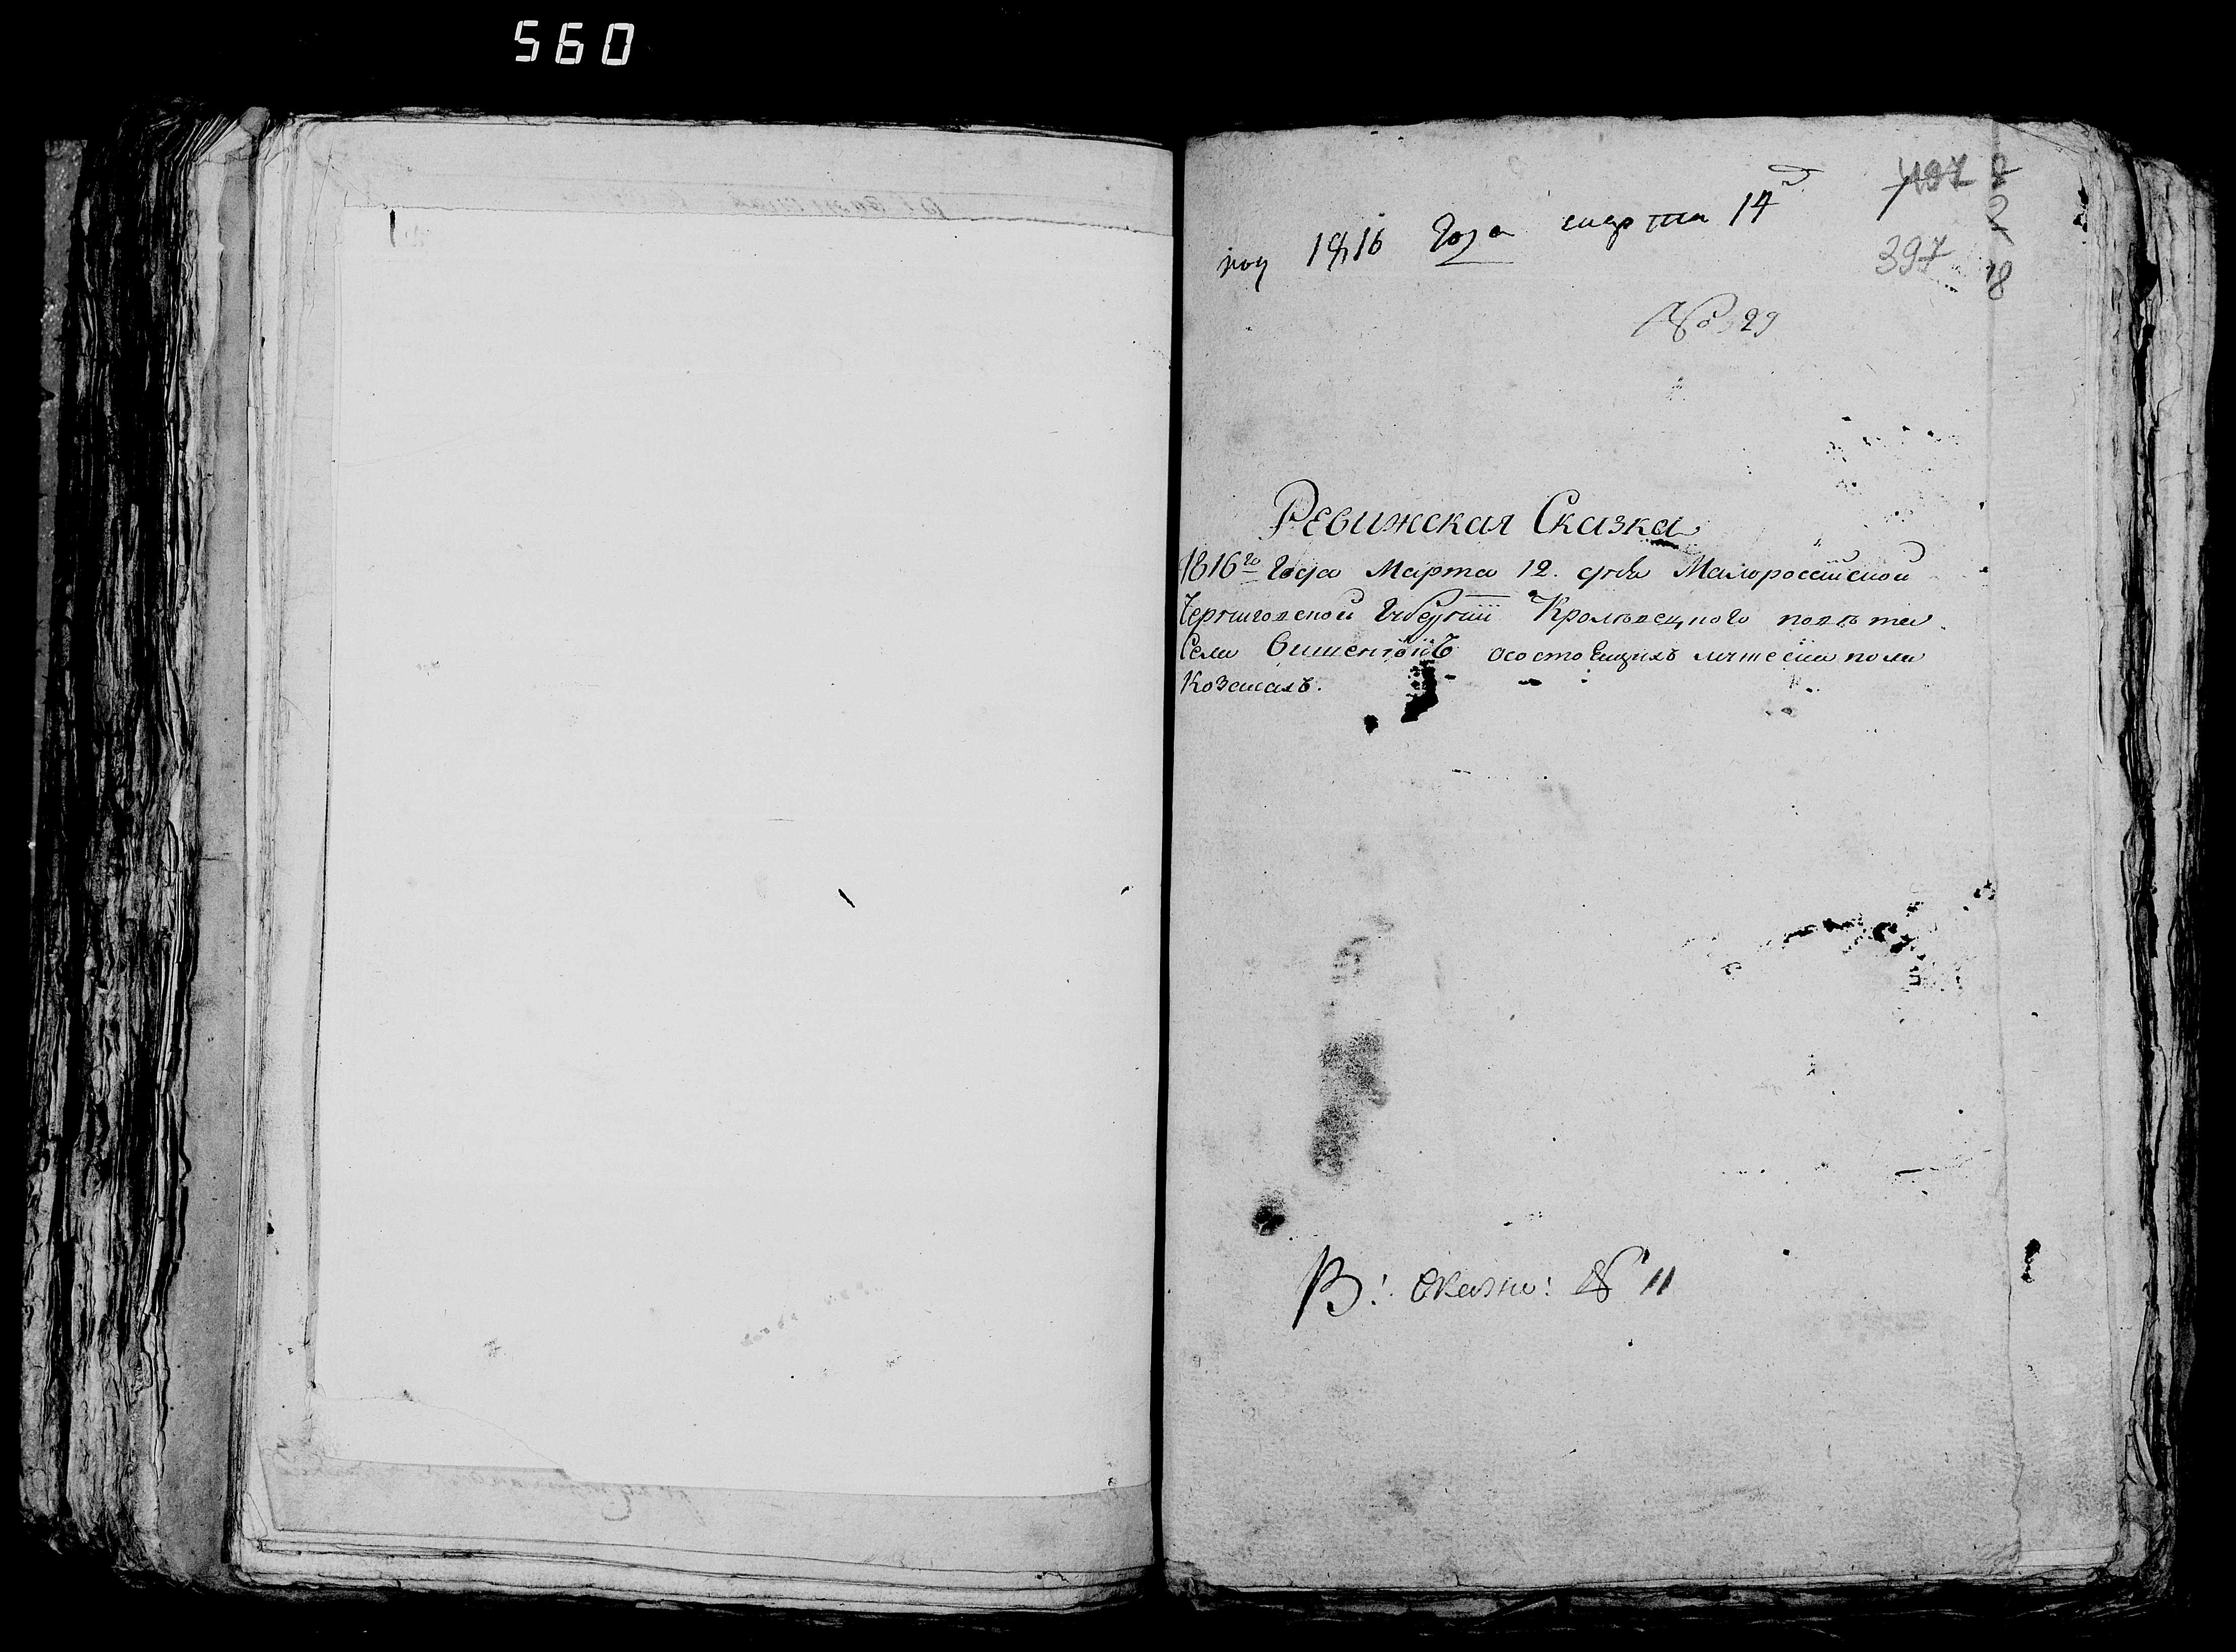 560
под 1816 года марта 14
497
397
18
№ 29
Ревижская Сказка
1816го Года Марта 12. дня Малоросийской
Черниговской Губернии Кролевецкого повѣта
Села Вишенокъ осостоящихъ мужеска пола
Козакахъ.
В: Сказка: № 11